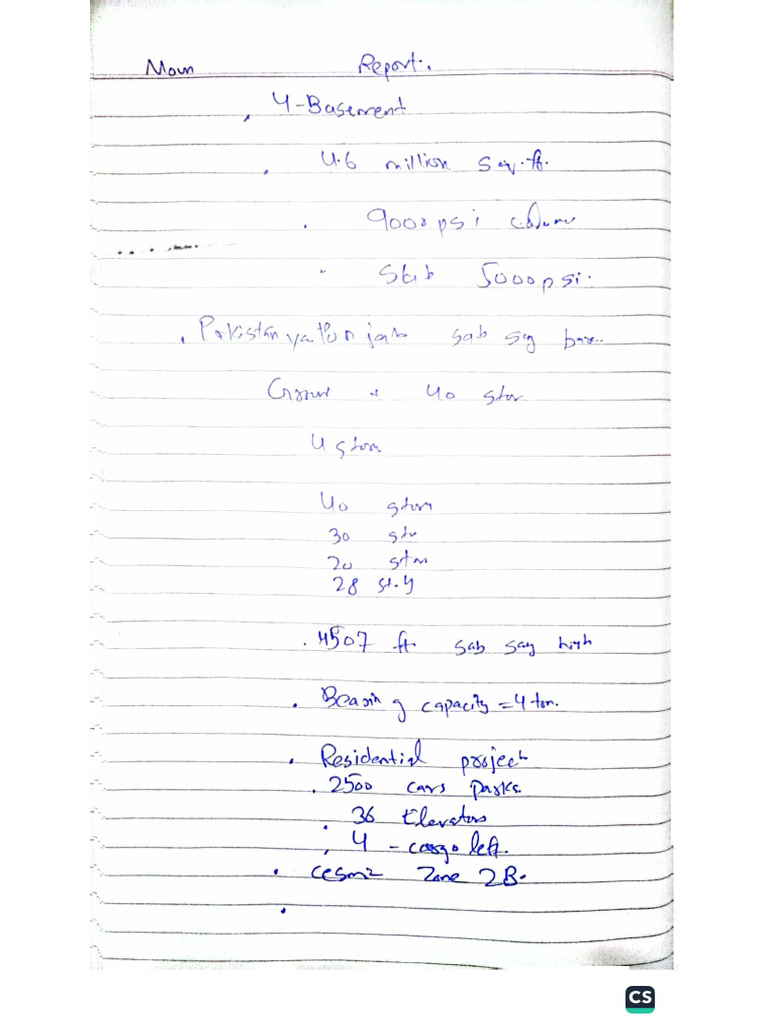 Report.
4-Basement
4.6 million sq.ft.
9000psi column
Slab 5000psi.
Pakistan ya Punjab sab say
+ 40
4
40
30
20
28
4507 ft sab say high
Bearing capacity = 4 ton.
Residential project
2500 cars Parks
36 Elevators
4 - cargo left.
Zone 2B.
CS